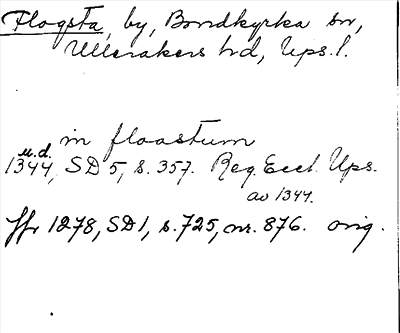 Flogsta, by, Bondkyrka sn,
Ulleråkers hd, Ups. l.
in floastum
u.d.
1344, SD 5, s. 357. Reg. Eccl. Ups.
av 1344.
Jfr 1278, SD 1, s. 725, nr. 876. orig.